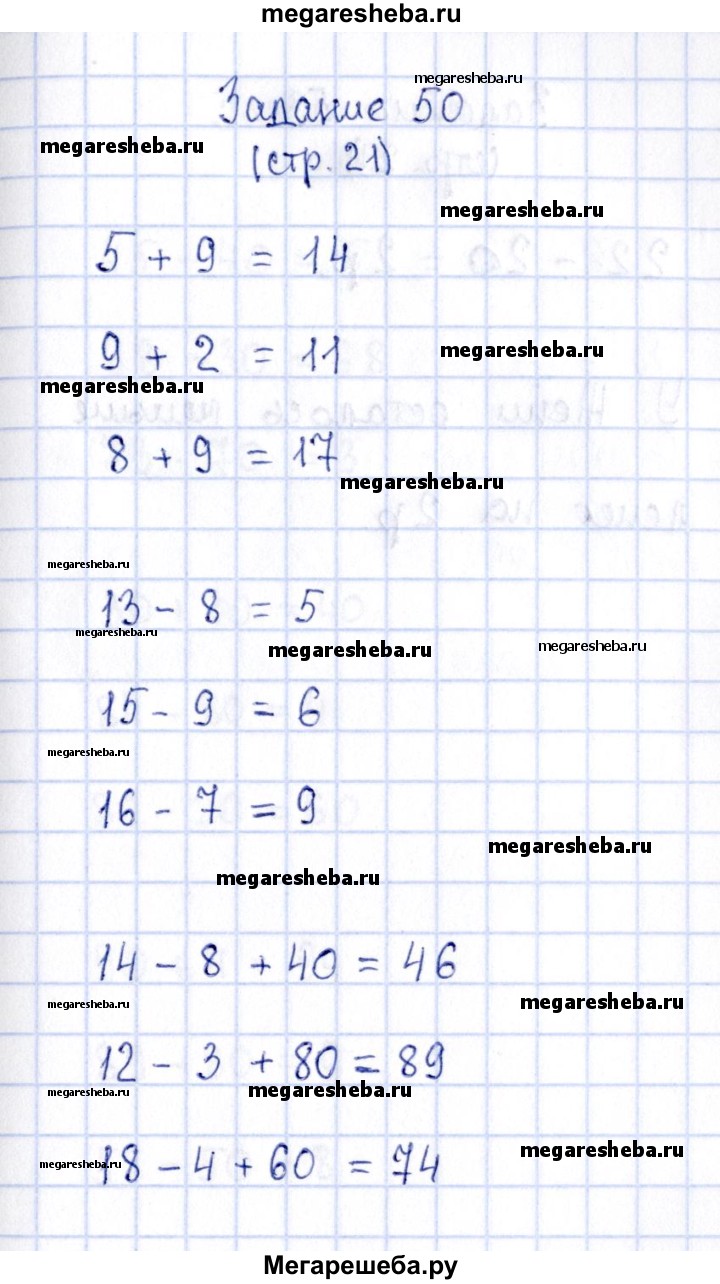 megaresheba.ru
megaresheba.ru
Задание 50
megaresheba.ru
(стр. 21)
megaresheba.ru
5 + 9 = 14
9 + 2 = 11
megaresheba.ru
megaresheba.ru
8 + 9 = 17
megaresheba.ru
megaresheba.ru
13 - 8 = 5
megaresheba.ru
megaresheba.ru
megaresheba.ru
15 - 9 = 6
megaresheba.ru
16 - 7 = 9
megaresheba.ru
megaresheba.ru
14 - 8 + 40 = 46
megaresheba.ru
megaresheba.ru
12 - 3 + 80 = 89
megaresheba.ru
megaresheba.ru
megaresheba.ru
18 - 4 + 60 = 74
megaresheba.ru
Мегарешеба.ру